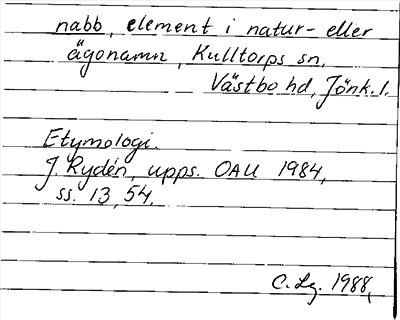 nabb, element i natur- eller
ägonamn, Kulltorps sn,
Västbo hd, Jönk. l.
Etymologi.
J. Rydén, upps. OAU 1984,
ss. 13, 54.
C. Lg. 1988,